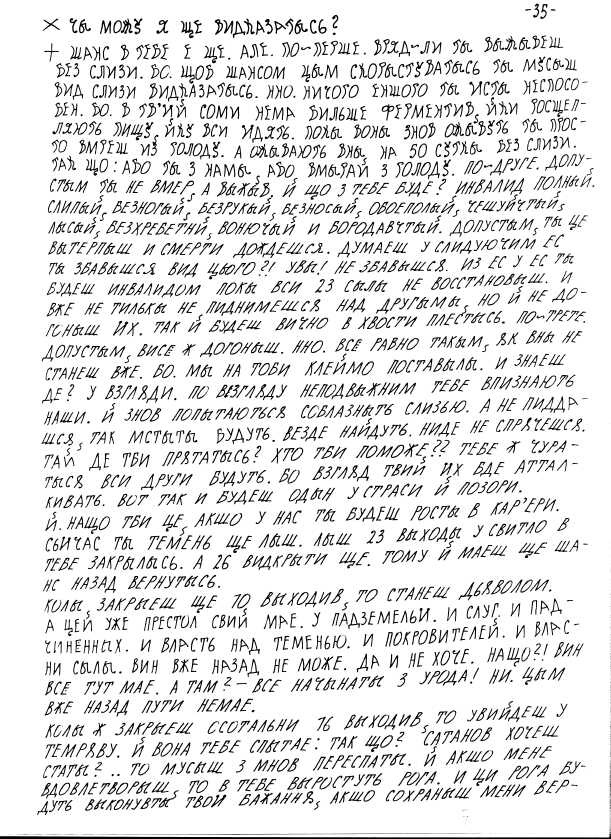 -35-
× ЧЫ МОЖУ Я ЩЕ ВИДКАЗАТЫСЬ?
+ ШАНС В ТЕБЕ Е ЩЕ. АЛЕ. ПО-ПЕРШЕ. ВРЯД-ЛИ ТЫ ВЫЖЫВЕШ
БЕЗ СЛИЗИ. БО. ЩОБ ШАНСОМ ЦЫМ СКОРЫСТУВАТЫСЬ ТЫ МУСЫШ
ВИД СЛИЗИ ВИДКАЗАТЫСЬ. ННО. НИЧОГО ЕНШОГО ТЫ ИСТЫ НЕСПОСО-
БЕН. БО. В ТВИЙ СОМИ НЕМА БИЛЬШЕ ФЕРМЕНТИВ, ЙКИ РОСЩЕП-
ЛЯЮТЬ ПИЩУ, ЙКУ ВСИ ИДЯТЬ. ПОКЫ ВОНЫ ЗНОВ ОЖЫВУТЬ ТЫ ПРОС-
ТО ВМРЕШ ИЗ ГОЛОДУ. А ОЖЫВАЮТЬ ВНЫ НА 50 СУТКЫ БЕЗ СЛИЗИ.
ТАК ЩО: АБО ТЫ З НАМЫ, АБО ВМЫРАЙ З ГОЛОДУ. ПО-ДРУГЕ. ДОПУ-
СТЫМ ТЫ НЕ ВМЕР, А ВЫЖЫВ, Й ЩО З ТЕБЕ БУДЕ? ИНВАЛИД ПОЛНЫЙ.
СЛИПЫЙ, БЕЗНОГЫЙ, БЕЗРУКЫЙ, БЕЗНОСЫЙ, ОБОЕПОЛЫЙ, ЧЕШУЙЧТЫЙ,
ЛЫСЫЙ, БЕЗХРЕБЕТНЙ, ВОНЮЧЫЙ И БОРОДАВЧТЫЙ. ДОПУСТЫМ, ТЫ ЦЕ
ВЫТЕРПЫШ И СМЕРТИ ДОЖДЕШСЯ. ДУМАЕШ У СЛИДУЮЧИМ ЕС
ТЫ ЗБАВЫШСЯ ВИД ЦЬОГО?! УВЫ! НЕ ЗБАВЫШСЯ. ИЗ ЕС У ЕС ТЫ
БУДЕШ ИНВАЛИДОМ ПОКЫ ВСИ 23 СЫЛЫ НЕ ВОССТАНОВЫШ. И
ВЖЕ НЕ ТИЛЬКЫ НЕ ПИДНИМЕШСЯ НАД ДРУГЫМЫ, НО Й НЕ ДО-
ГОНЫШ ИХ. ТАК Й БУДЕШ ВИЧНО В ХВОСТИ ПЛЕСТЫСЬ. ПО-ТРЕТЕ.
ДОПУСТЫМ, ВИСЕ Ж ДОГОНЫШ. ННО. ВСЕ РАВНО ТАКЫМ, ЯК ВНЫ НЕ
СТАНЕШ ВЖЕ. БО. МЫ НА ТОБИ КЛЕЙМО ПОСТАВЫЛЫ. И ЗНАЕШ
ДЕ? У ВЗГЛЯДИ. ПО ВЗГЛЯДУ НЕПОДВЫЖНИМ ТЕБЕ ВПИЗНАЮТЬ
НАШИ. Й ЗНОВ ПОПЫТАЮТЬСЯ СОБЛАЗНЫТЬ СЛИЗЬЮ. А НЕ ПИДДА-
ШСЯ, ТАК МСТЫТЫ БУДУТЬ. ВЕЗДЕ НАЙДУТЬ. НИДЕ НЕ СПРЯЧЕШСЯ.
ТАЙ ДЕ ТБИ ПРЯТАТЫСЬ? ХТО ТБИ ПОМОЖЕ?? ТЕБЕ Ж ЧУРА-
ТЫСЯ ВСИ ДРУГИ БУДУТЬ. БО ВЗГЛЯД ТВИЙ ЙХ БДЕ АТТАЛ-
КИВАТЬ. ВОТ ТАК И БУДЕШ ОДЫН У СТРАСИ Й ПОЗОРИ.
Й. НАЩО ТБИ ЦЕ, АКШО У НАС ТЫ БУДЕШ РОСТЫ В КАР'ЕРИ.
СЬИЧАС ТЫ ТЕМЕНЬ ЩЕ ЛЫШ. ЛЫШ 23 ВЫХОДЫ У СВИТЛО В
ТЕБЕ ЗАКРЫЛЫСЬ. А 26 ВИДКРЫТИ ЩЕ. ТОМУ Й МАЕШ ЩЕ ША-
НС НАЗАД ВЕРНУТЫСЬ.
КОЛЫ, ЗАКРЫЕШ ЩЕ 10, ВЫХОДИВ, ТО СТАНЕШ ДЬЯВОЛОМ.
А ЦЕЙ УЖЕ ПРЕСТОЛ СВИЙ МАЕ. У ПАДЗЕМЕЛЬИ. И СЛУГ, И ПАД-
ЧИНЕННЫХ. И ВЛАСТЬ НАД ТЕМЕНЬЮ. И ПОКРОВИТЕЛЕЙ. И ВЛАС-
НИ СЫЛЫ. ВИН ВЖЕ НАЗАД НЕ МОЖЕ. ДА И НЕ ХОЧЕ. НАЩО?! ВИН
ВСЕ ТУТ МАЕ. А ТАМ? - ВСЕ НАЧЫНАТЫ З УРОДА! НИ. ЦЫМ
ВЖЕ НАЗАД ПУТИ НЕМАЕ.
КОЛЫ Ж ЗАКРЫЕШ ОСОТАЛЬНИ 16 ВЫХОДИВ, ТО УВИЙДЕШ У
ТЕМРЯВУ. Й ВОНА ТЕБЕ СПЫТАЕ: ТАК ЩО? САТАНОВ ХОЧЕШ
СТАТЫ? .. ТО МУСЫШ З МНОВ ПЕРЕСПАТЫ. Й АКШО МЕНЕ
ВДОВЛЕТВОРЫШ, ТО В ТЕБЕ ВЫРОСТУТЬ РОГА. И ЦИ РОГА БУ-
ДУТЬ ВЫКОНУВТЫ ТВОЙ БАЖАННЯ, АКШО СОХРАНЫШ МЕНИ ВЕР-